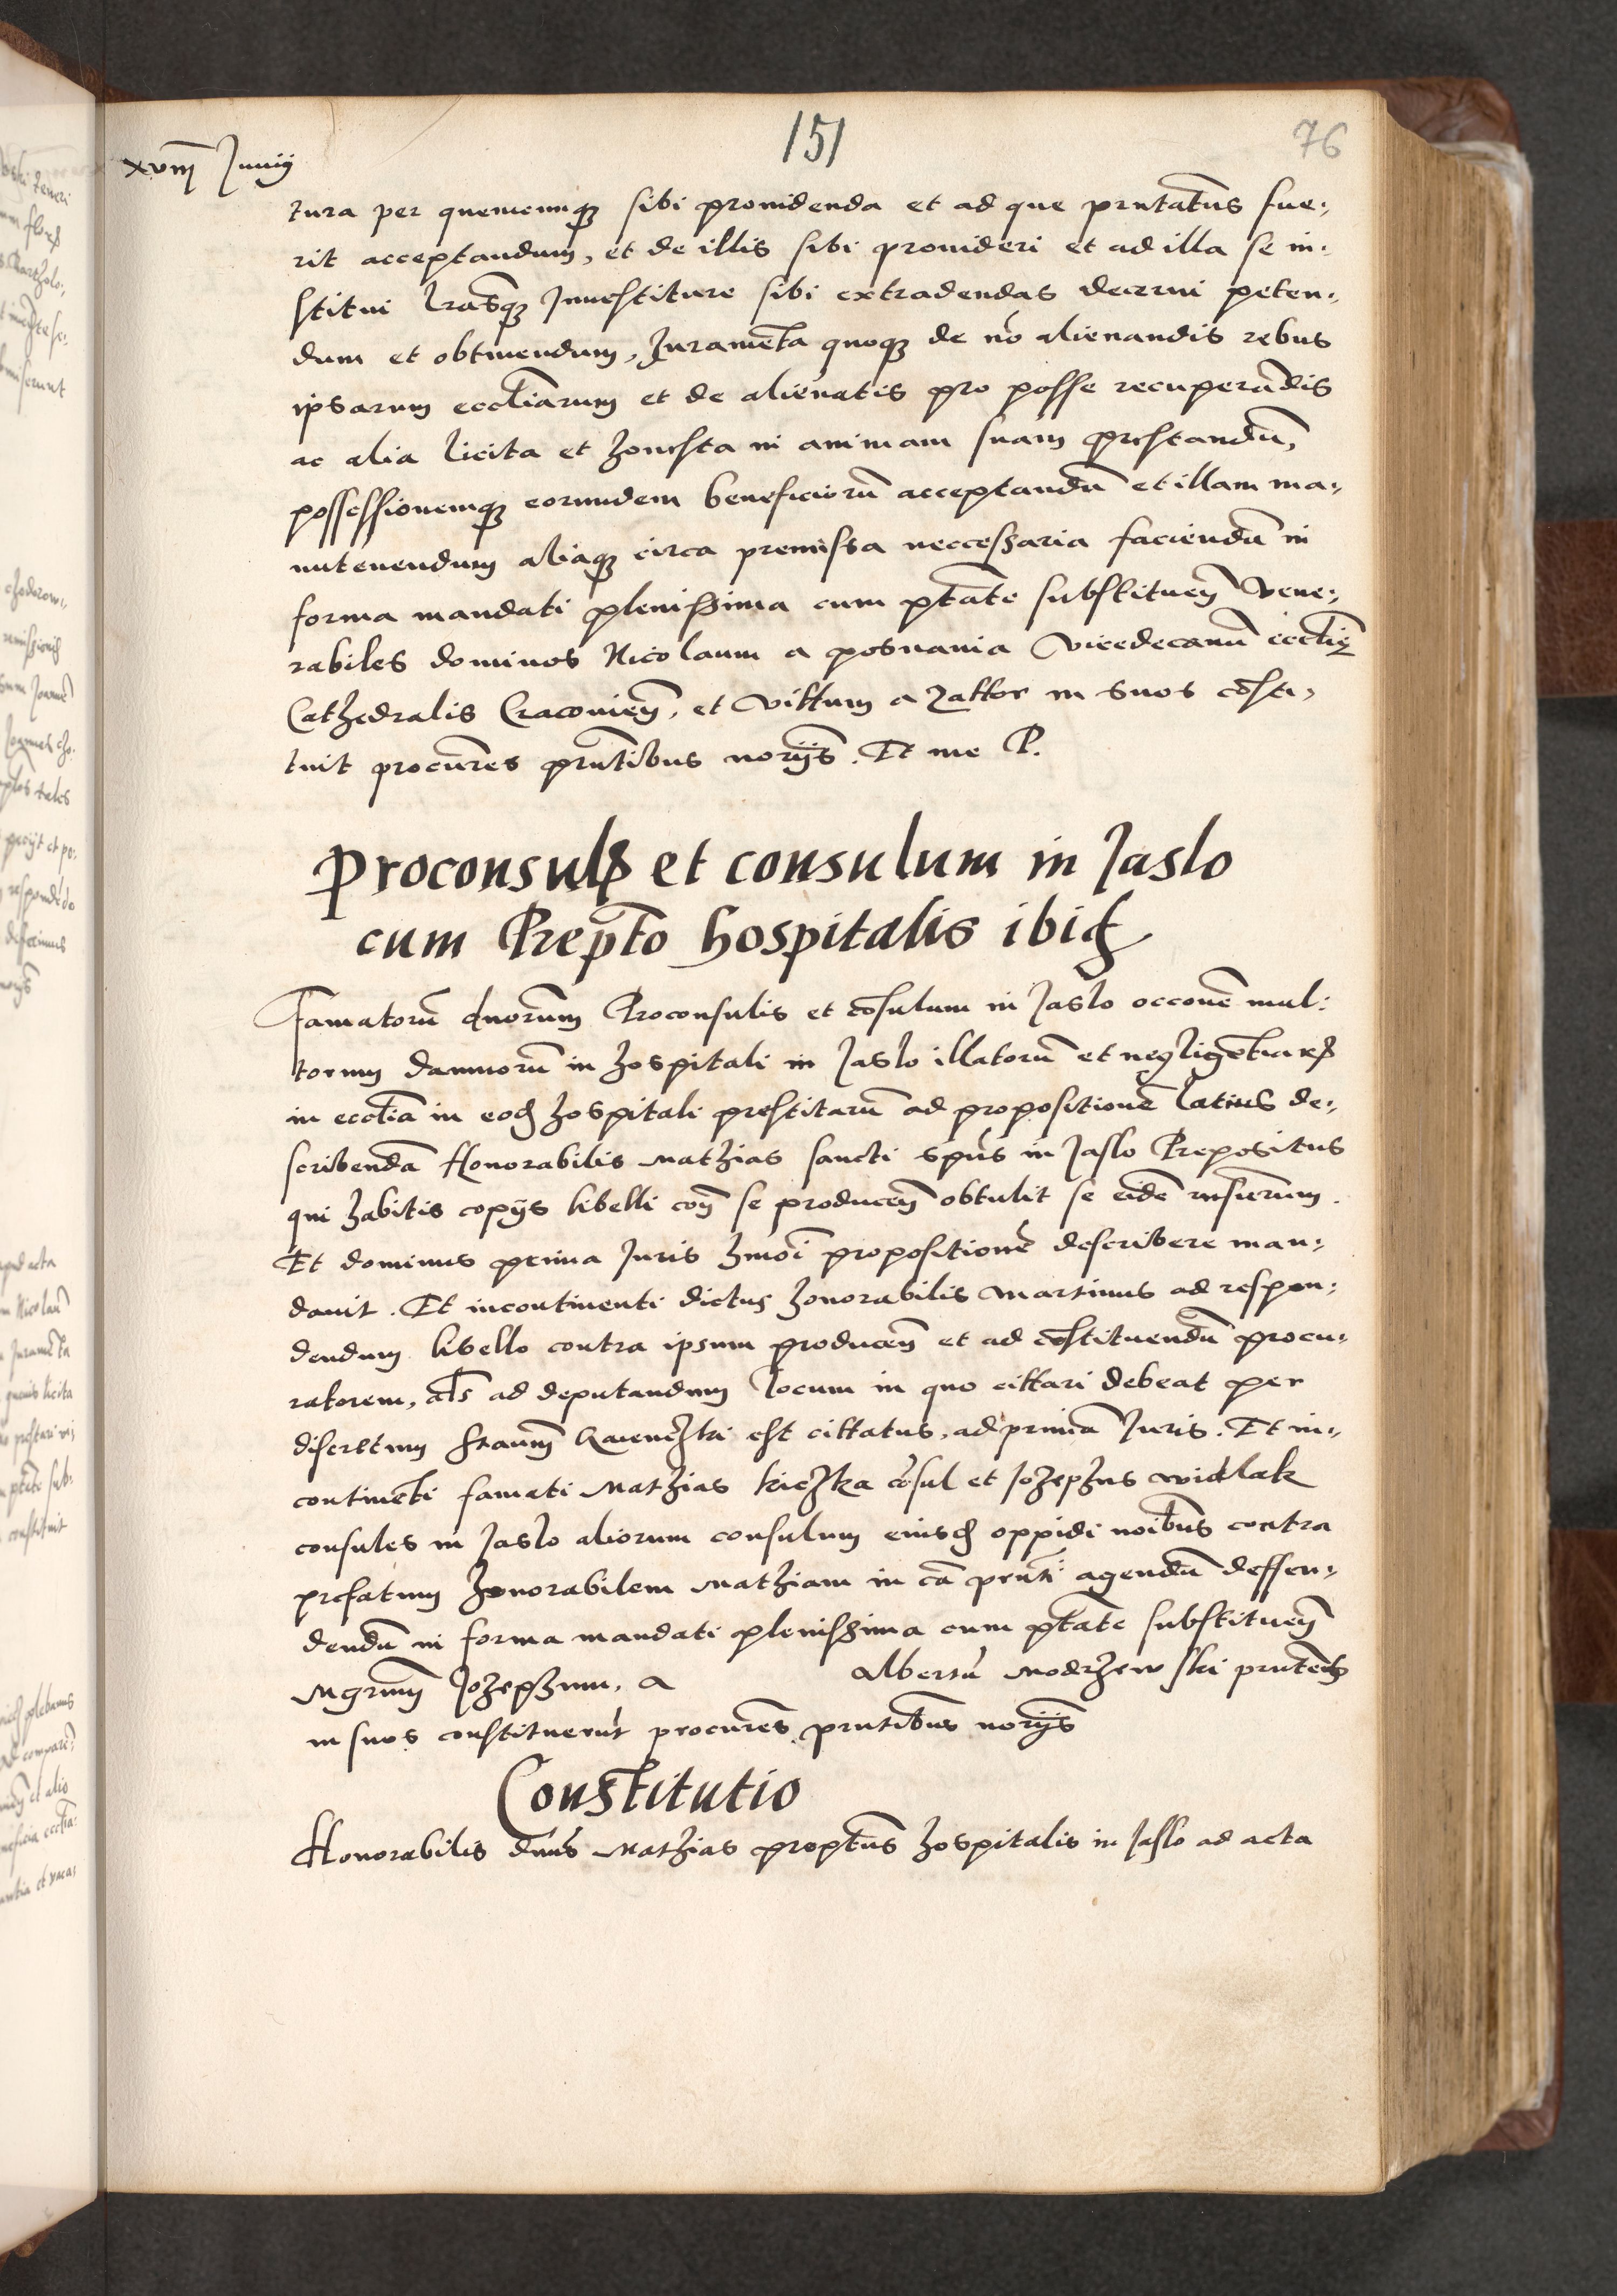 151
76
xvııı Junij
tura per quemcunqꝫ sibi prouidenda et ad que prntatus fue„
rit acceptandum, et de illis sibi prouideri et ad illa se in„
stitui lrasqꝫ Inuestiture sibi extradendas decerni peten„
dum et obtinendum, Juramēta quoqꝫ de nō alienandis rebus
ipsarum eccliarum et de alienatis pro posse recuperādis
ac alia licita et honesta in animam suam prestandū,
possessionemqꝫ eorundem beneficiorū acceptandū et illam ma„
nutenendum aliaqꝫ circa premissa neccessaria faciendū in
forma mandati plenissima cum ptate substituen̄ Vene„
rabiles dominos Nicolaum a posnania Vicedecanū eccliȩ
Cathedralis Cracouien̄, et Vittum a Zattor in suos cōsti„
tuit procures prntibus norijs. Et me P.
Proconsulꝭ et consulum in Jaslo
cum Prepto hospitalis ibid
Famatorū dnorum Proconsulis et cōsulum in Jaslo occone mul„
torum damnorū in hospitali in Jaslo illatorū et negligētiarꝝ
in ecclia in eod hospitali prestitarū ad propositionē latius de„
scribendā Honorabilis Mathias sancti spūs in Jaslo Prepositus
qui habitis copijs libelli con̄ se producen̄ obtulit se eidē rn̄surum.
Et dominus prima Juris hmoi propositionē describere man„
dauit. Et incontinenti dictus honorabilis Martinus ad respon„
dendum libello contra ipsum producen̄ et ad cōstituendū procu„
ratorem, als ad deputandum locum in quo cittari debeat per
discretum est cittatus, ad primā Juris. Et in„
continēti famati Mathias kiczka cōsul et Jozephus widlak
consules in Jaslo aliorum consulum eiusd oppidi noibus contra
prefatum honorabilem Mathiam in cā prnti agendū deffen„
dendū in forma mandati plenissima cum ptate substituen̄
Mgrum Jozephum, a Albertū Modrzewski prntes
in suos constituerūt procures prntibus norijs
Constitutio
Honorabilis dnus Mathias preptus hospitalis in Jaslo ad acta